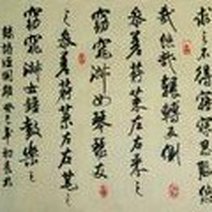 求之不得寤寐思服
哉悠哉輾轉反側
參差荇菜左右采
窈窕淑女琴瑟友
之參差荇菜左右芼之
窈窕淑女鐘鼓樂之